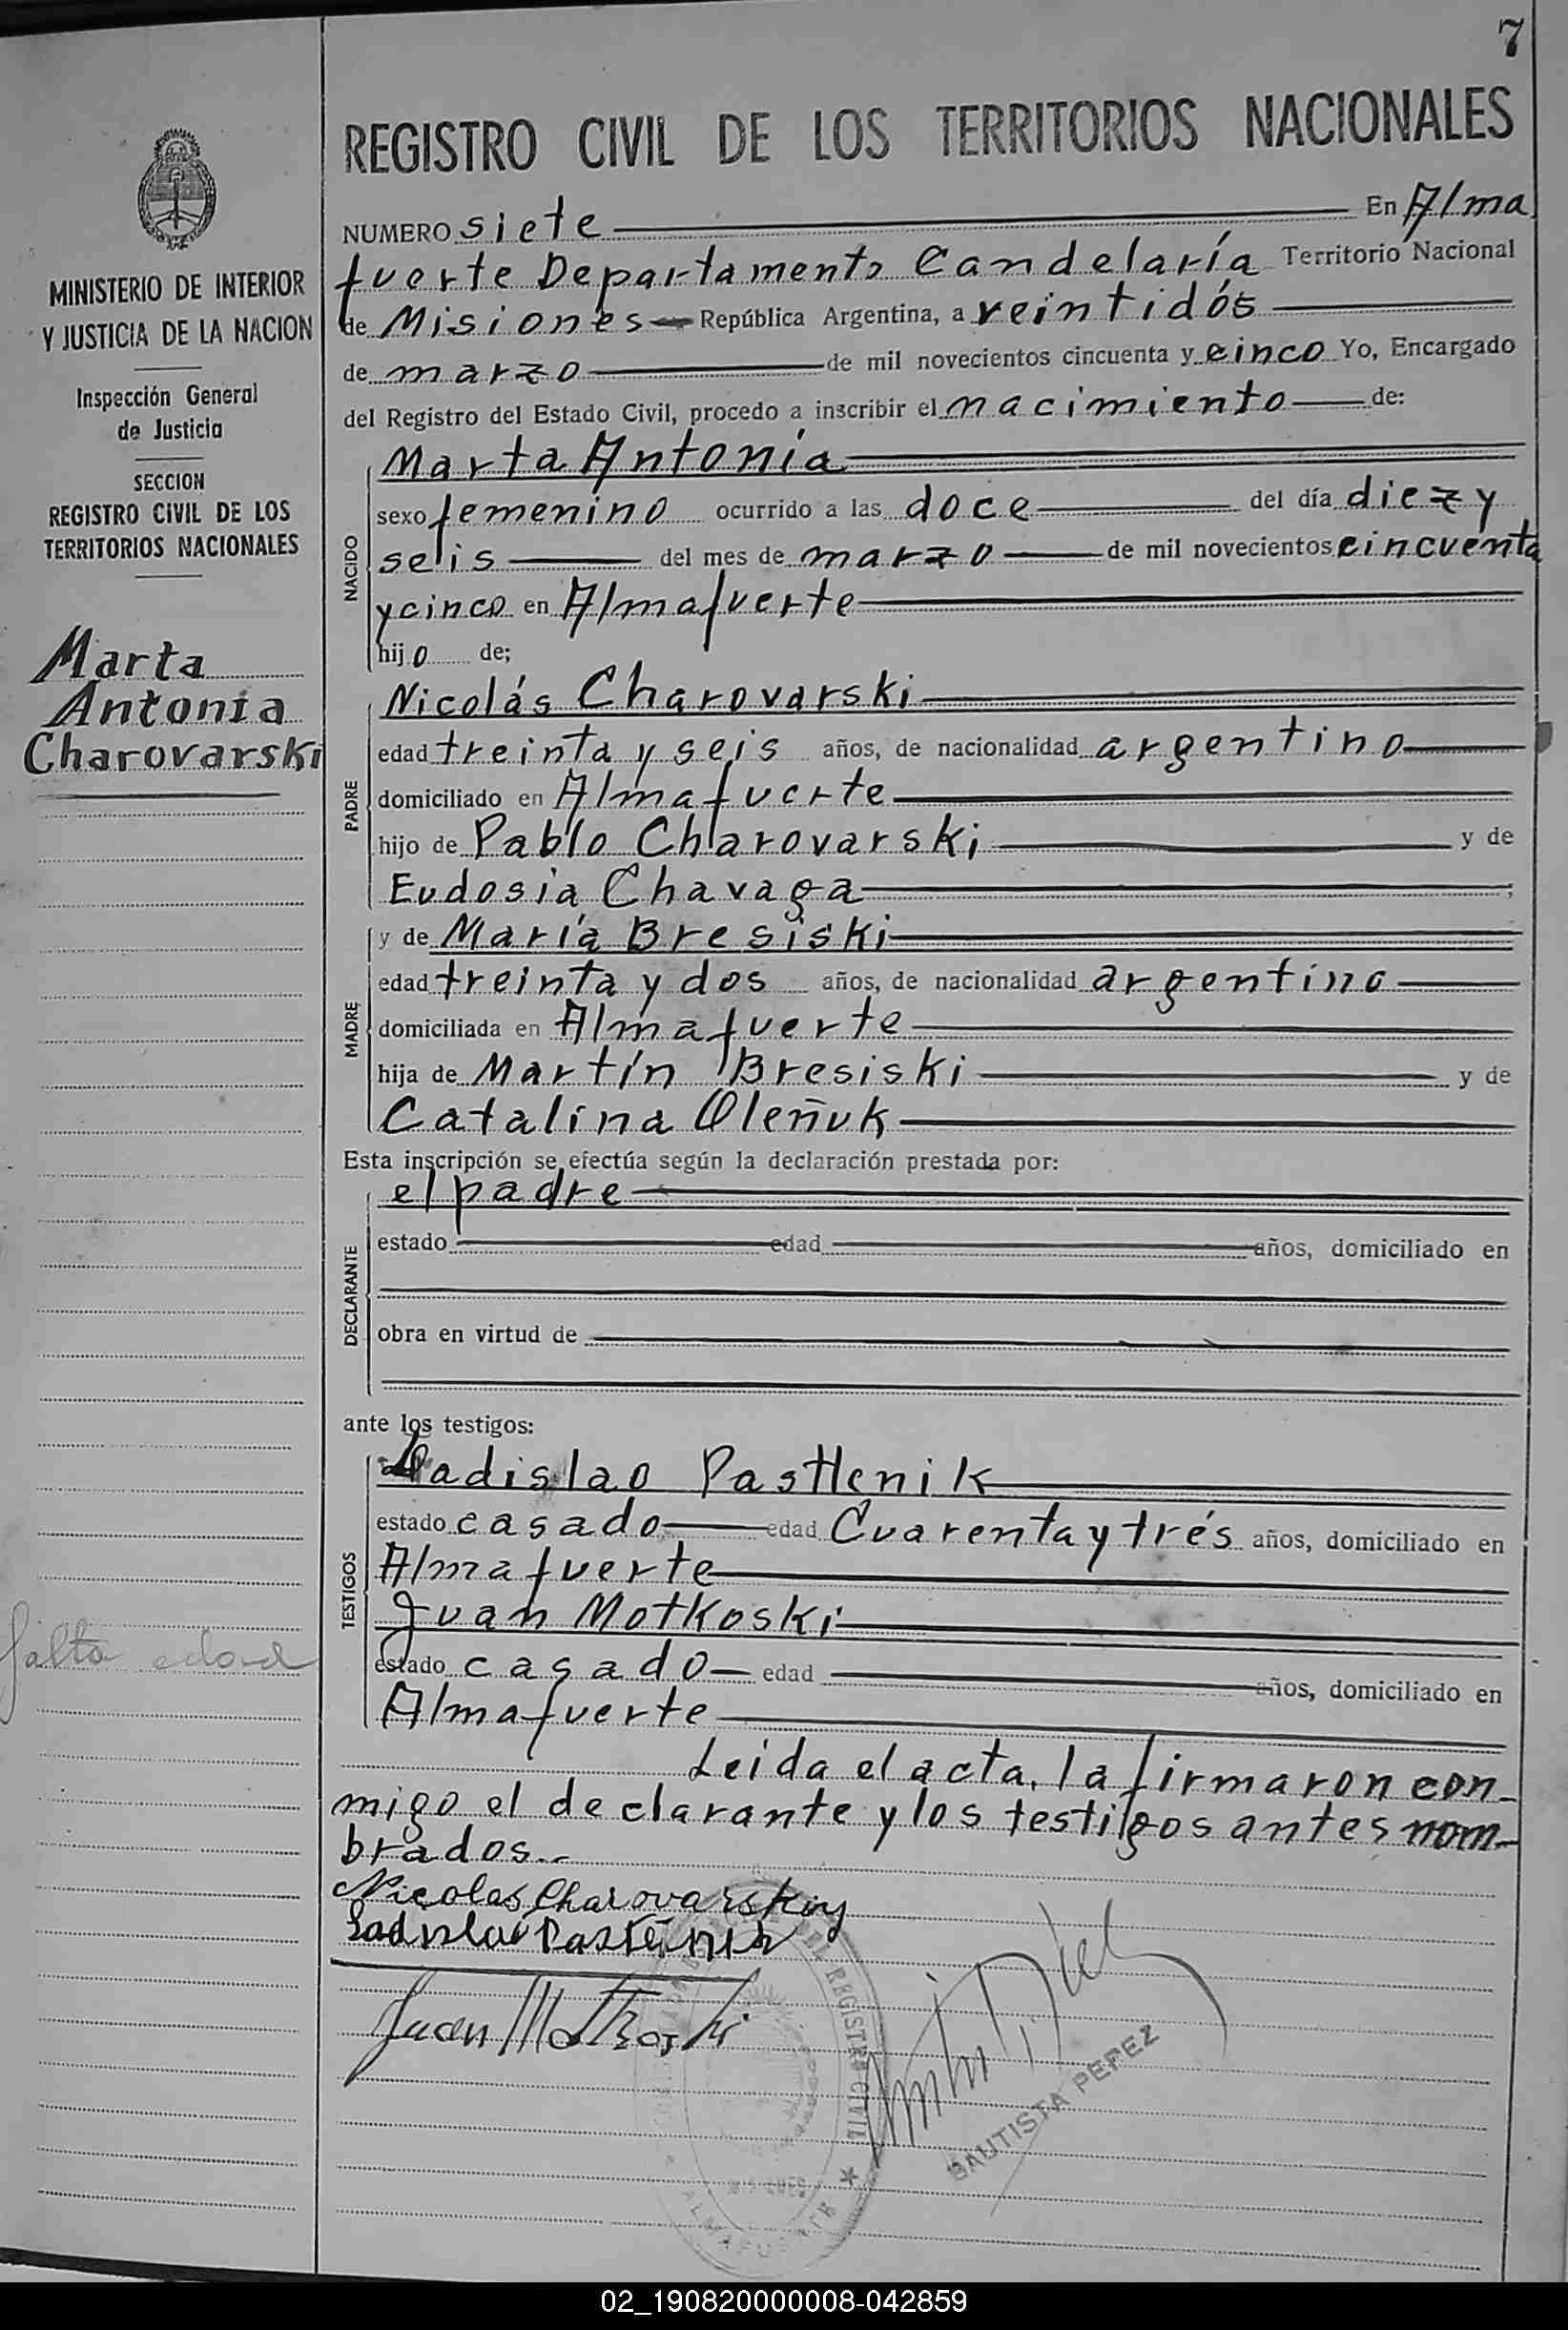 7
REGISTRO CIVIL DE LOS TERRITORIOS NACIONALES
MINISTERIO DE INTERIOR
Y JUSTICIA DE LA NACION
Inspección General
de Justicia
SECCION
REGISTRO CIVIL DE LOS
TERRITORIOS NACIONALES
Marta
Antonia
Charovarski
falta edad
NUMERO siete En Alma
fuerte Departamento Candelaría Territorio Nacional
de Misiones República Argentina, a veintidós
de marzo de mil novecientos cincuenta y cinco Yo, Encargado
del Registro del Estado Civil, procedo a inscribir el nacimiento de:
NACIDO
Marta Antonia
sexo femenino ocurrido a las doce del día diez y
seis del mes de marzo de mil novecientos cincuenta
y cinco en Almafuerte
hijo de;
PADRE
Nicolás Charovarski
edad treinta y seis años, de nacionalidad argentino
domiciliado en Almafuerte
hijo de Pablo Charovarski y de
Eudosia Chavaga;
MADRE
y de María Bresiski
edad treinta y dos años, de nacionalidad argentino
domiciliada en Almafuerte
hija de Martín Bresiski y de
Catalina Oleñuk
Esta inscripción se efectúa según la declaración prestada por:
DECLARANTE
el padre
estado edad años, domiciliado en
obra en virtud de
ante los testigos:
TESTIGOS
Ladislao Pastlenik
estado casado edad Cuarenta y trés años, domiciliado en
Almafuerte
Juan Motkoski
estado casado edad años, domiciliado en
Almafuerte
Leida el acta, la firmaron con-
migo el declarante y los testigos antes nom-
brados.-
Nicolas Charovarskiy
Ladislao
Juan Motkoski
REGISTRO CIVIL
ALMAFUERTE
BAUTISTA PEREZ
02_190820000008-042859